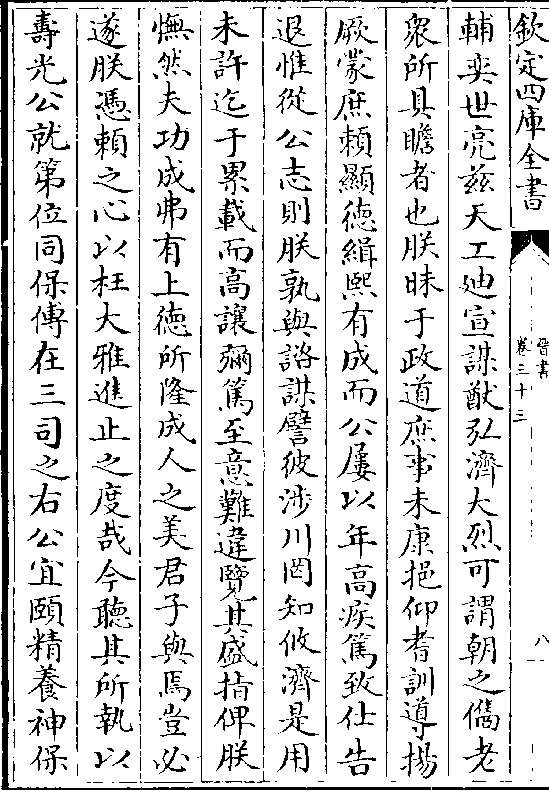 欽定四庫全書
晉書
卷三十三
八
輔奕世亮兹天工迪宣謀猷弘濟大烈可謂朝之儁老
衆所具瞻者也朕昧于政道庶事未康挹仰耆訓導揚
厥蒙庶賴顯德緝熙有成而公屢以年高疾篤致仕告
退惟從公志則朕孰與諮謀譬彼涉川罔知攸濟是用
未許迄于累載而高讓彌篤至意難違覽其盛指俾朕
憮然夫功成弗有上徳所隆成人之美君子與焉豈必
遂朕憑賴之心以枉大雅進止之度哉今聽其所執以
壽光公就第位同保傅在三司之右公宜頤精養神保